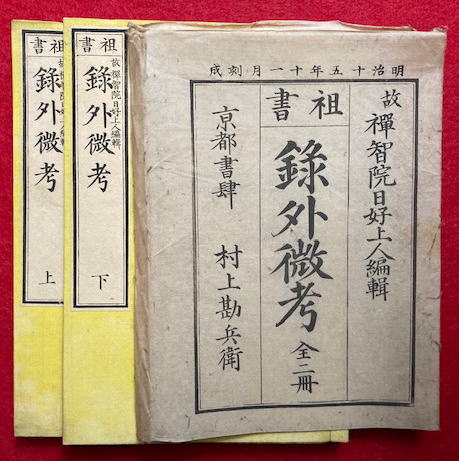 明治十五年十一月刻成
故 禪智院日好上人編輯
祖書
錄外微考 全二冊
亰都書肆 村上勘兵衛
祖書
故禪智院日好上人編輯
錄外微考
下
祖書
故禪智院日好上人編輯
錄外微考
上